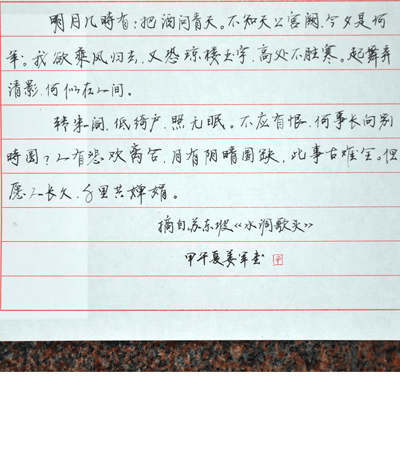 明月几時有：把酒问青天。不知天上宫阙，今夕是何
年。我欲乘风归去，又恐琼楼玉宇，高处不胜寒。起舞弄
清影，何似在人间。
转朱阁，低绮户，照无眠。不应有恨，何事长向别
時圆？人有悲欢离合，月有阴晴圆缺，此事古难全。但
愿人长久，千里共婵娟。
摘自苏东坡《水调歌头》
甲午夏姜军书